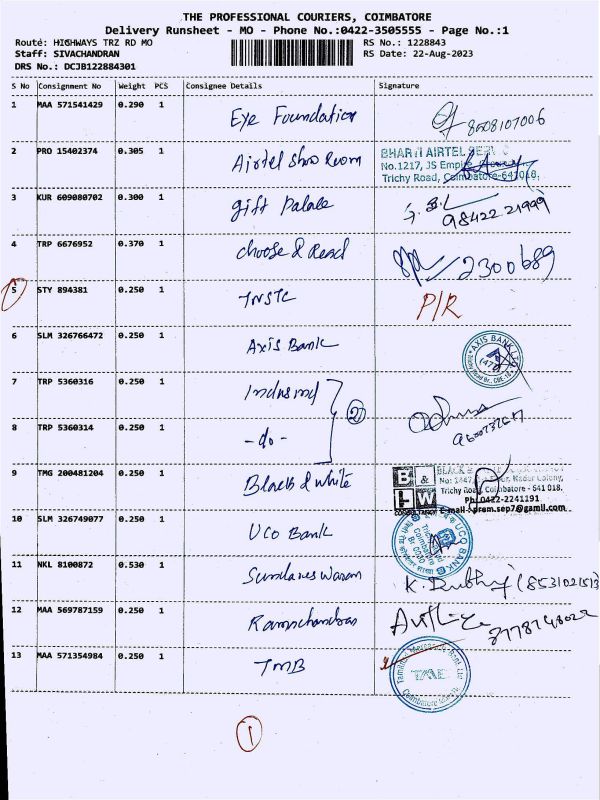 THE PROFESSIONAL COURIERS, COIMBATORE
Delivery Runsheet - MO - Phone No.:0422-3505555 - Page No.:1
Route: HIGHWAYS TRZ RD MO
RS No.: 1228843
Staff: SIVACHANDRAN
RS Date: 22-Aug-2023
DRS No.: DCJB122884301
S No Consignment No Weight PCS Consignee Details Signature
1 MAA 571541429 0.290 1 Eye Foundation 8508107006
2 PRO 15402374 0.305 1 Airtel Show Room
BHARTI AIRTEL
No.1217, JS
Trichy Road, Coimbatore-641018,
3 KUR 609080702 0.300 1 gift Palace 98422 21999
4 TRP 6676952 0.370 1 choose & Read 2300689
5 STY 894381 0.250 1 TNSTC P/R
6 SLM 326766472 0.250 1 Axis Bank
AXIS BANK LTD
7 TRP 5360316 0.250 1 Indusind
2
8 TRP 5360314 0.250 1 -do-
9 TMG 200481204 0.250 1 Black & white
B & W
BLACK &
Nadar Colony,
Trichy Road, Coimbatore - 641 018.
Ph:0422-2241191
E-mail : prem.sep7@gamil.com
10 SLM 326749077 0.250 1 UCO Bank
UCO BANK
11 NKL 8100872 0.530 1 Sundareswaran
12 MAA 569787159 0.250 1 Ramachandran
13 MAA 571354984 0.250 1 TMB
Tamilnad Mercantile Bank Ltd
1